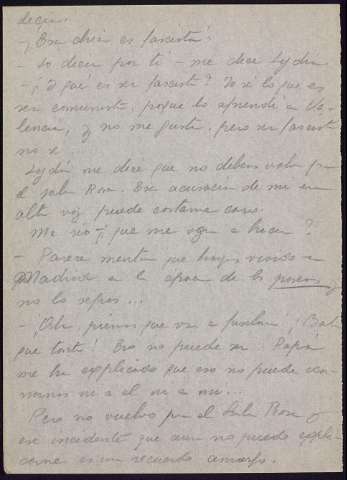 decir:
- ¡Esa chica es fascista!
- Lo dicen por ti - me dice Lydia
- ¿Y qué es ser fascista? Yo sé lo que es
ser comunista, porque lo aprendí en Va-
lencia, y no me gusta, pero ser fascista
no sé.
Lydia me dice que no debemos volver por
el salón Rosa. Esa acusación de mi en
alta voz puede costarme caro.
Me río. ¿qué me van a hacer?
- Parece mentira que hayas vivido en
Madrid en la época de los paseos y
no lo sepas...
- ¡Oh, piensas que van a fusilar! ¡Bah
que tonta! Eso no puede ser. Papá
me ha explicado que eso no puede ocu-
rrirnos ni a él ni a mi...
Pero no vuelvo por el Salón Rosa y
ese incidente que aun no puedo expli-
carme es un recuerdo amargo.